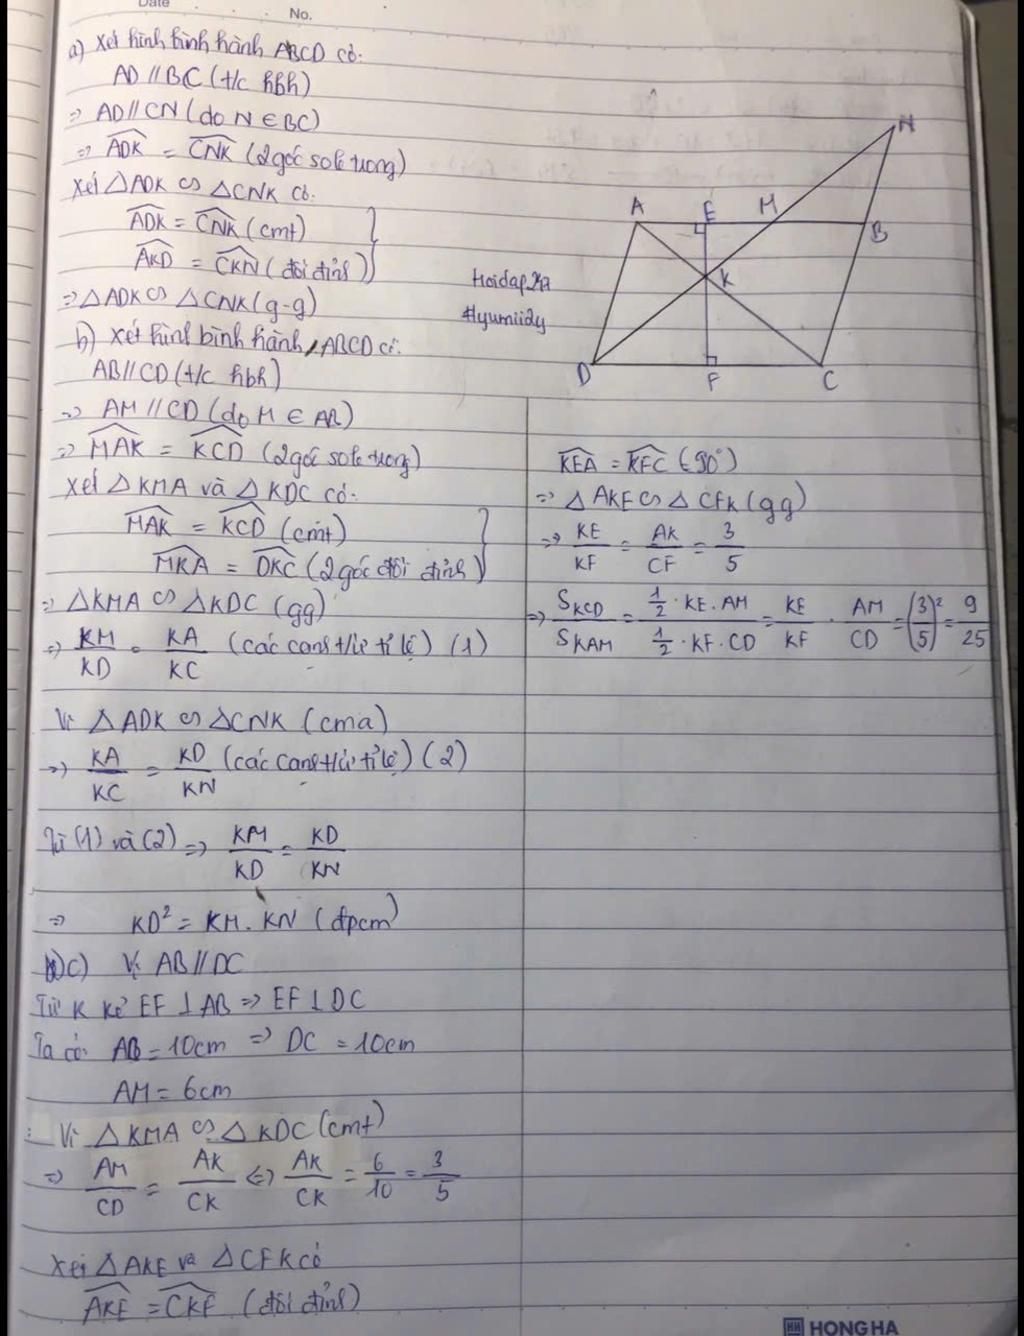 Date
No.
a) Xét hình bình hành ABCD có:
AD // BC (t/c hbh)
=> AD // CN (do N ∈ BC)
=> ADK = CNK (2 góc so le trong)
Xét △ADK ∽ △CNK có:
ADK = CNK (cmt)
AKD = CKN (đối đỉnh)
=> △ADK ∽ △CNK (g-g)
b) Xét hình bình hành ABCD có:
AB // CD (t/c hbh)
=> AM // CD (do M ∈ AB)
=> MAK = KCD (2 góc so le trong)
Xét △KMA và △KDC có:
MAK = KCD (cmt)
MKA = DKC (2 góc đối đỉnh)
=> △KMA ∽ △KDC (gg)
=> KM/KD = KA/KC (các cạnh t/ư tỉ lệ) (1)
Vì △ADK ∽ △CNK (cma)
=> KA/KC = KD/KN (các cạnh t/ư tỉ lệ) (2)
Từ (1) và (2) => KM/KD = KD/KN
=> KD² = KM . KN (đpcm)
c) Vì AB // DC
Từ K kẻ EF ⊥ AB => EF ⊥ DC
Ta có: AB = 10cm => DC = 10cm
AM = 6cm
Vì △KMA ∽ △KDC (cmt)
=> AM/CD = AK/CK <=> AK/CK = 6/10 = 3/5
Xét △AKE và △CFK có
AKE = CKF (đối đỉnh)
N
A E M B
K
D F C
Hoidap247
#lyumiidy
KEA = KFC (90°)
=> △AKE ∽ △CFK (gg)
=> KE/KF = AK/CF = 3/5
=> S KCD / S KAM = 1/2 . KE . AM / 1/2 . KF . CD = KE/KF . AM/CD = (3/5)² = 9/25
HH HONG HA